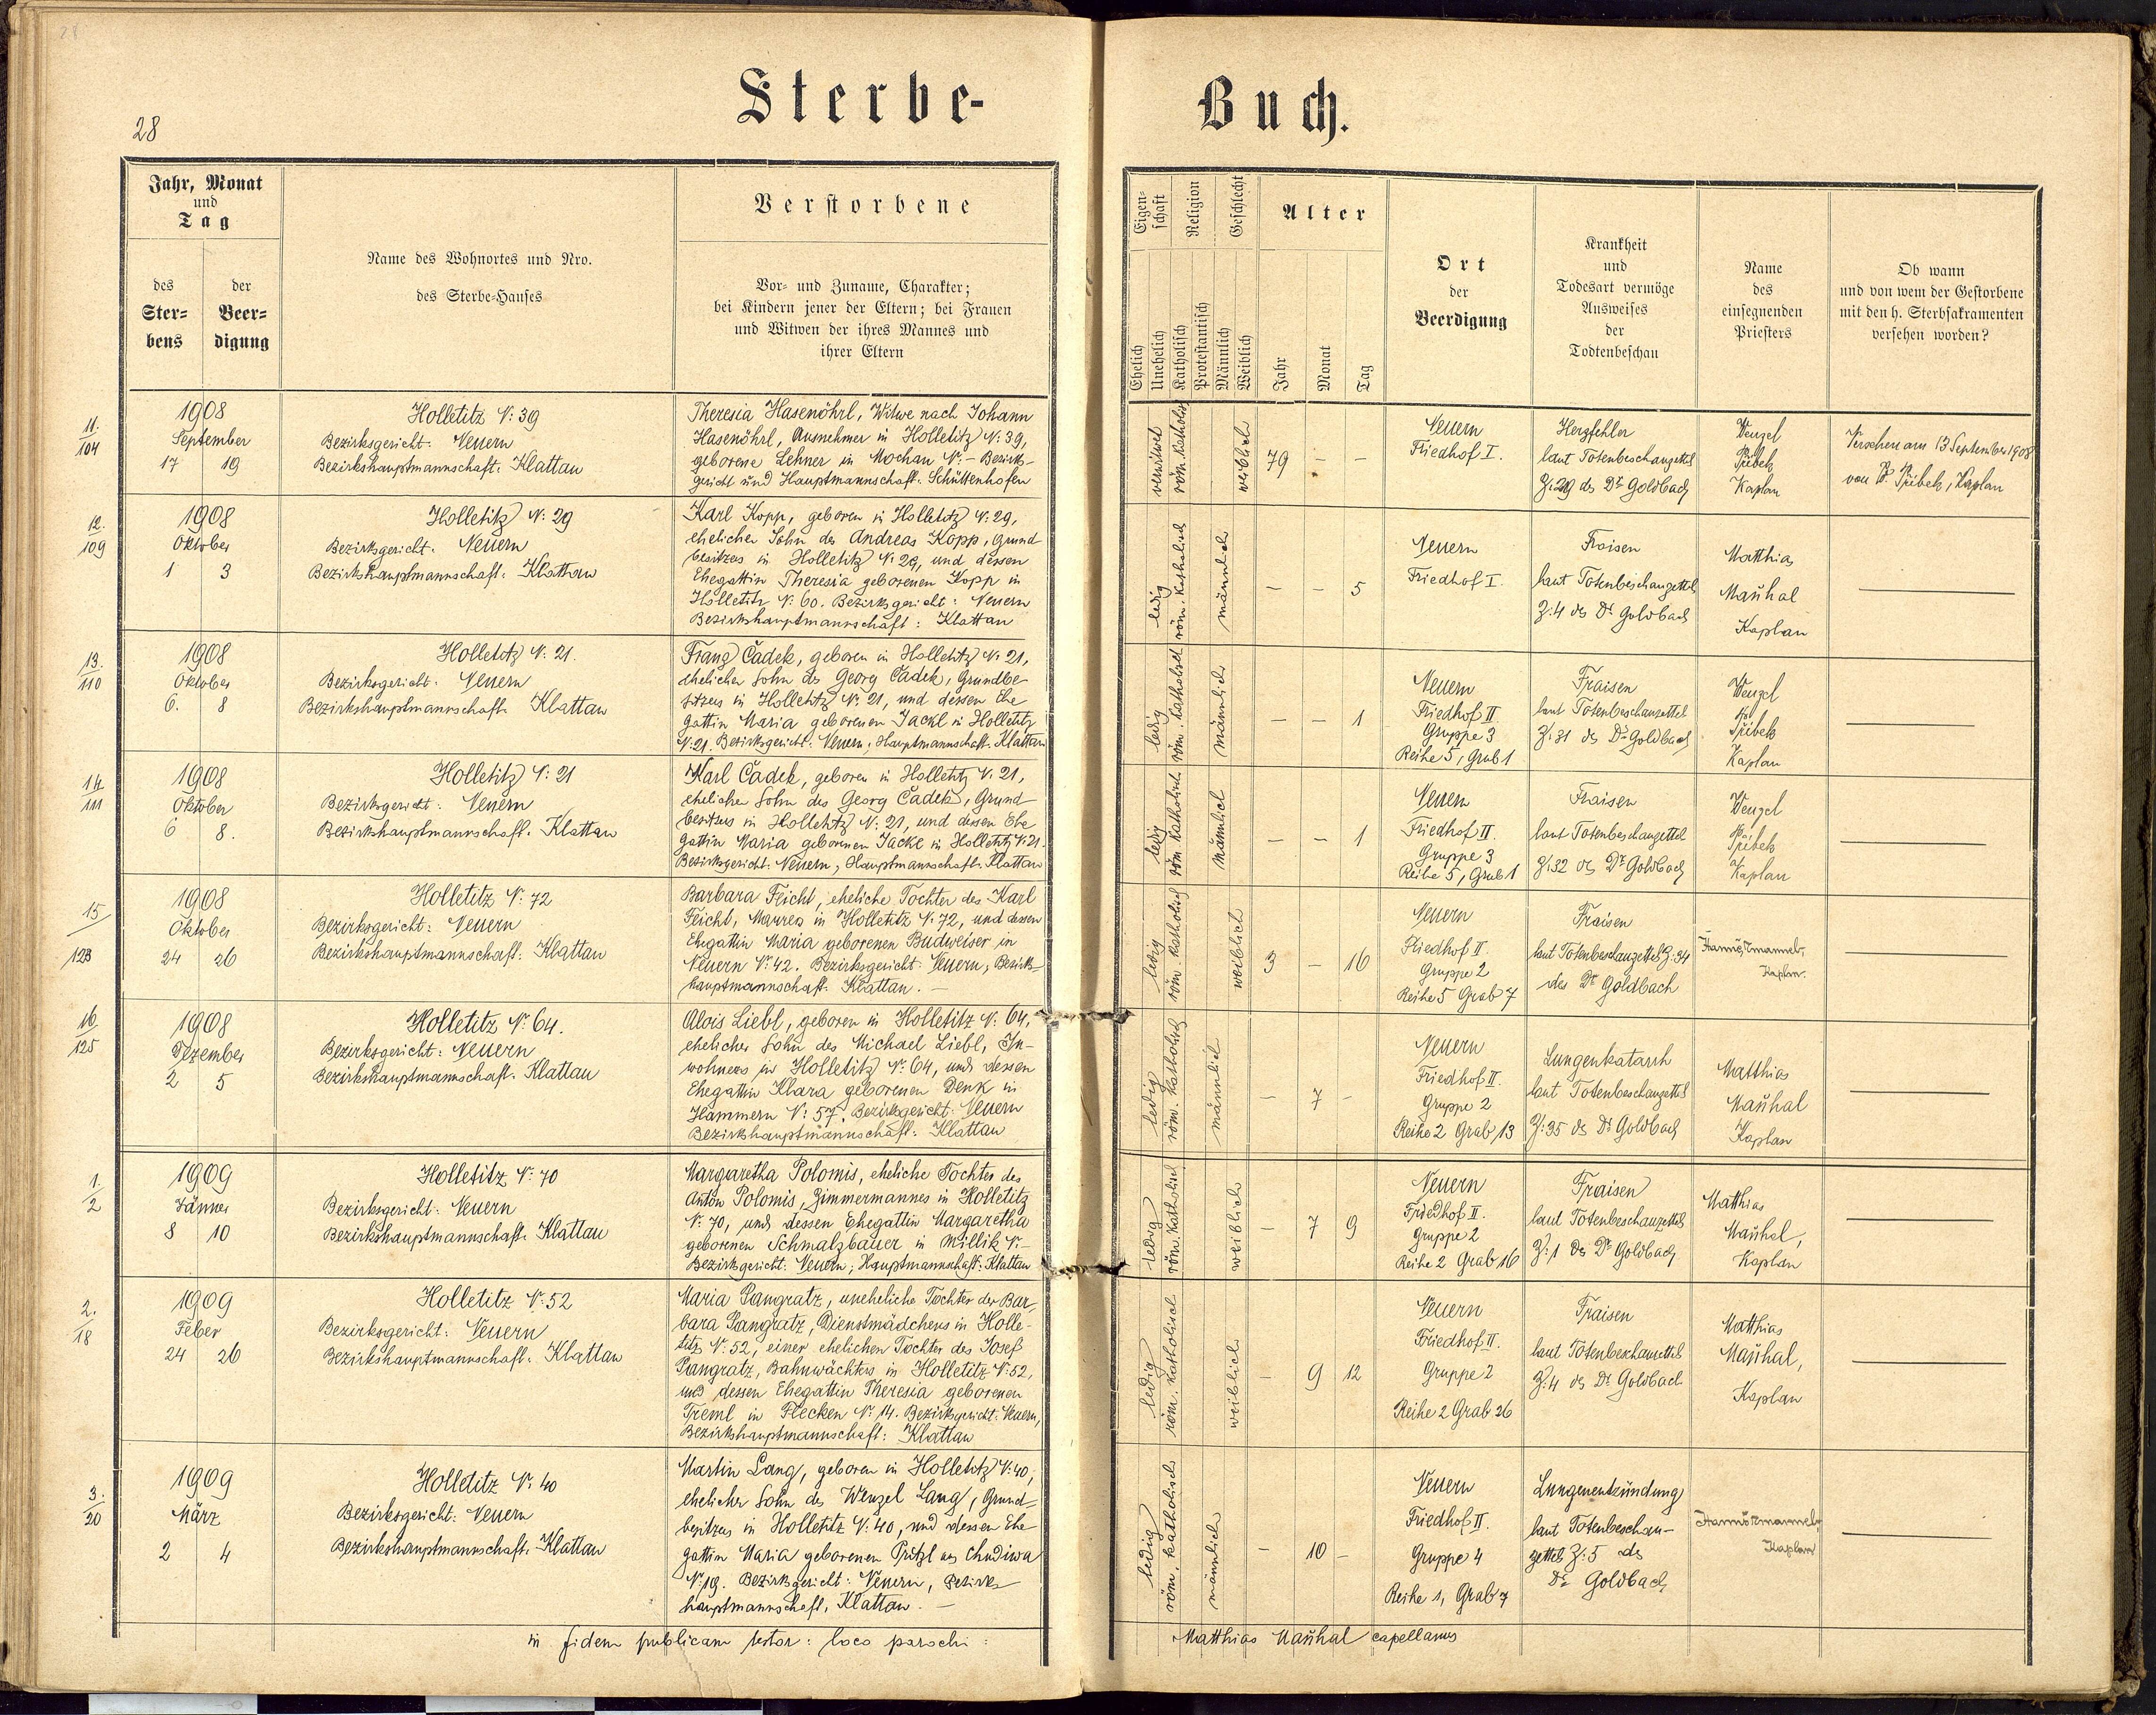 28
Sterbe-
Buch.
Jahr, Monat
und
Tag
des
Ster-
bens
der
Beer-
digung
Name des Wohnortes und Nro.
des Sterbe-Hauses
Verstorbene
Vor- und Zuname, Charakter;
bei Kindern jener der Eltern; bei Frauen
und Witwen der ihres Mannes und
ihrer Eltern
Eigen-
schaft
Religion
Geschlecht
Alter
Ehelich
Unehelich
Katholisch
Protestantisch
Männlich
Weiblich
Jahr
Monat
Tag
Ort
der
Beerdigung
Krankheit
und
Todesart vermöge
Ausweises
der
Todtenbeschau
Name
des
einsegnenden
Priesters
Ob wann
und von wem der Gestorbene
mit den h. Sterbsakramenten
versehen worden?
11.
104
1908
September
17 19
Holletitz N: 39
Bezirksgericht: Neuern
Bezirkshauptmannschaft: Klattau
Theresia Hasenöhrl, Witwe nach Johann
Hasenöhrl, Ausnehmer in Holletitz N: 39,
geborene Lehner in Mochau N: - Bezirks-
gericht und Hauptmannschaft: Schüttenhofen
verwitwet
röm. katholisch
weiblich
79 - -
Neuern
Friedhof I.
Herzfehler
laut Totenbeschauzettel
Z: 29 des Dr Goldbach
Wenzel
Přibek
Kaplan
Versehen am 13 September 1908
von P. Přibek, Kaplan
12.
109
1908
Oktober
1 3
Holletitz N: 29
Bezirksgericht: Neuern
Bezirkshauptmannschaft: Klattau
Karl Kopp, geboren in Holletitz N: 29,
ehelicher Sohn des Andreas Kopp, Grund
besitzers in Holletitz N: 29, und dessen
Ehegattin Theresia geborenen Kopp in
Holletitz N: 60. Bezirksgericht: Neuern
Bezirkshauptmannschaft: Klattau
ledig
röm. katholisch
männlich
- - 5
Neuern
Friedhof I.
Fraisen
laut Totenbeschauzettel
Z: 4 des Dr Goldbach
Matthias
Maňhal
Kaplan
13.
110
1908
Oktober
6. 8
Holletitz N: 21.
Bezirksgericht: Neuern
Bezirkshauptmannschaft: Klattau
Franz Čadek, geboren in Holletitz N: 21,
ehelicher Sohn des Georg Čadek, Grundbe-
sitzers in Holletitz N: 21, und dessen Ehe
gattin Maria geborenen Jackl in Holletitz
N: 21. Bezirksgericht: Neuern, Hauptmannschaft: Klattau
ledig
röm. katholisch
männlich
- - 1
Neuern
Friedhof II
Gruppe 3
Reihe 5, Grab 1
Fraisen
laut Totenbeschauzettel
Z: 31 des Dr Goldbach
Wenzel
Přibek
Kaplan
14
111
1908
Oktober
6 8.
Holletitz N: 21
Bezirksgericht: Neuern
Bezirkshauptmannschaft: Klattau
Karl Čadek, geboren in Holletitz N: 21,
ehelicher Sohn des Georg Čadek, Grund
besitzers in Holletitz N: 21, und dessen Ehe
gattin Maria geborenen Jackl in Holletitz N: 21
Bezirksgericht: Neuern, Hauptmannschaft: Klattau
ledig
röm. katholisch
männlich
- - 1
Neuern
Friedhof II.
Gruppe 3
Reihe 5, Grab 1
Fraisen
laut Totenbeschauzettel
Z: 32 des Dr Goldbach
Wenzel
Přibek
Kaplan
15
123
1908
Oktober
24 26
Holletitz N: 72
Bezirksgericht: Neuern
Bezirkshauptmannschaft: Klattau
Barbara Feicht, eheliche Tochter des Karl
Feicht, Maurers in Holletitz N: 72, und dessen
Ehegattin Maria geborenen Budweiser in
Neuern N: 42. Bezirksgericht: Neuern, Bezirks-
hauptmannschaft: Klattau. -
ledig
röm. katholisch
weiblich
3 - 16
Neuern
Friedhof II.
Gruppe 2
Reihe 5 Grab 7
Fraisen
laut Totenbeschauzettel Z: 34
des Dr Goldbach
Kaplan.
16
125
1908
Dezember
2 5
Holletitz N: 64.
Bezirksgericht: Neuern
Bezirkshauptmannschaft: Klattau
Alois Liebl, geboren in Holletitz N: 64,
ehelicher Sohn des Michael Liebl, In-
wohners in Holletitz N: 64, und dessen
Ehegattin Klara geborenen Denk in
Hammern N: 57. Bezirksgericht: Neuern
Bezirkshauptmannschaft: Klattau
ledig
röm. katholisch
männlich
- 7 -
Neuern
Friedhof II.
Gruppe 2
Reihe 2 Grab 13
Lungenkatarrh
laut Totenbeschauzettel
Z: 35 des Dr Goldbach
Matthias
Maňhal
Kaplan
1.
2
1909
Jänner
8 10
Holletitz N: 70
Bezirksgericht: Neuern
Bezirkshauptmannschaft: Klattau
Margaretha Polomis, eheliche Tochter des
Anton Polomis, Zimmermannes in Holletitz
N: 70, und dessen Ehegattin Margaretha
geborenen Schmalzbauer in Millik N: -
Bezirksgericht: Neuern; Hauptmannschaft: Klattau
ledig
röm. katholisch
weiblich
- 7 9
Neuern
Friedhof II.
Gruppe 2
Reihe 2 Grab 16
Fraisen
laut Totenbeschauzettel
Z: 1 des Dr Goldbach
Matthias
Maňhal,
Kaplan
2.
18
1909
Feber
24 26
Holletitz N: 52
Bezirksgericht: Neuern
Bezirkshauptmannschaft: Klattau
Maria Pangratz, uneheliche Tochter der Bar-
bara Pangratz, Dienstmädchens in Holle-
titz N: 52, einer ehelichen Tochter des Josef
Pangratz, Bahnwächters in Holletitz N: 52,
und dessen Ehegattin Theresia geborenen
Treml in Flecken N: 14. Bezirksgericht: Neuern,
Bezirkshauptmannschaft: Klattau
ledig
röm. katholisch
weiblich
- 9 12
Neuern
Friedhof II.
Gruppe 2
Reihe 2 Grab 26
Fraisen
laut Totenbeschauzettel
Z: 4 des Dr Goldbach
Matthias
Maňhal,
Kaplan
3.
20
1909
März
2 4
Holletitz N: 40
Bezirksgericht: Neuern
Bezirkshauptmannschaft: Klattau
Martin Lang, geboren in Holletitz N: 40,
ehelicher Sohn des Wenzel Lang, Grund-
besitzers in Holletitz N: 40, und dessen Ehe
gattin Maria geborenen Pritzl aus Chudiwa
N: 19. Bezirksgericht: Neuern, Bezirks
hauptmannschaft, Klattau. -
ledig
röm. katholisch
männlich
- 10 -
Neuern
Friedhof II.
Gruppe 4
Reihe 1, Grab 7
Lungenentzündung
laut Totenbeschau-
zettel Z: 5 des
Dr Goldbach
Kaplan
in fidem publicam testor: loco parochi:
Matthias Maňhal capellanus